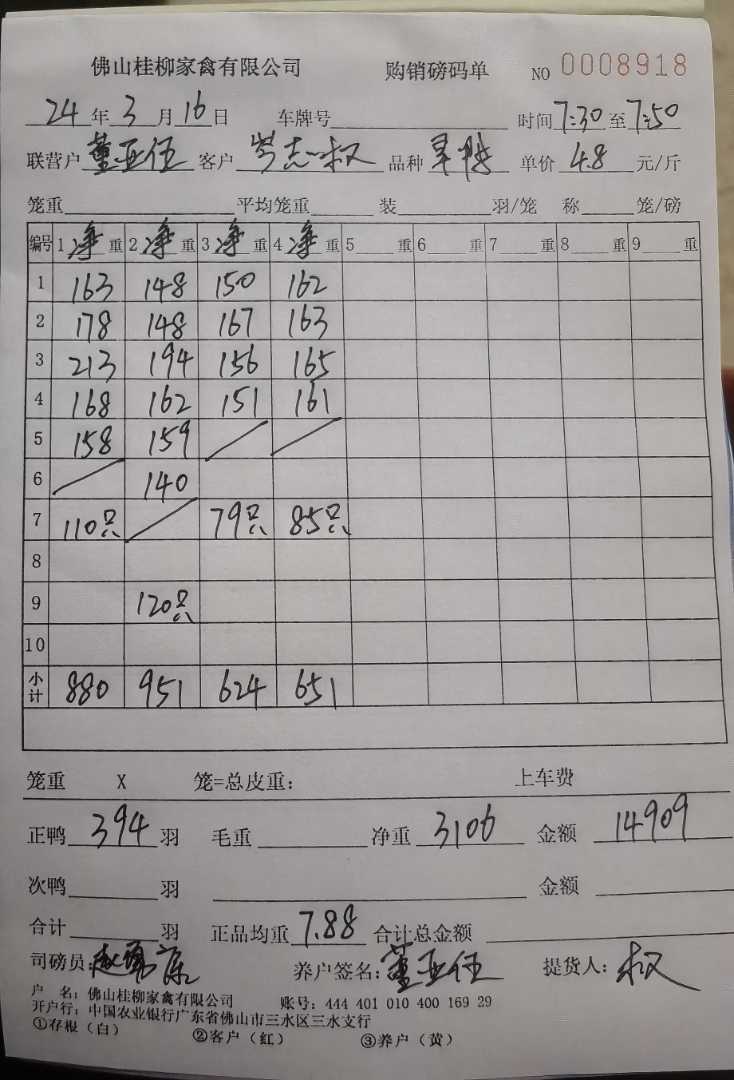 佛山桂柳家禽有限公司 购销磅码单 NO 0008918
24年3月16日 车牌号 时间7:30至7:50
联营户 董亚伍 客户 岑志权 品种 单价 4.8 元/斤
笼重 平均笼重 装 羽/笼 称 笼/磅
编号 1净重 2净重 3净重 4净重 5 重 6 重 7 重 8 重 9 重
1 163 148 150 162
2 178 148 167 163
3 213 194 156 165
4 168 162 151 161
5 158 159
6 140
7 110只 79只 85只
8
9 120只
10
小计 880 951 624 651
笼重 X 笼=总皮重: 上车费
正鸭 394 羽 毛重 净重 3106 金额 14909
次鸭 羽 金额
合计 羽 正品均重 7.88 合计总金额
司磅员: 养户签名:董亚伍 提货人:权
户 名:佛山桂柳家禽有限公司 账号:444 401 010 400 169 29
开户行:中国农业银行广东省佛山市三水区三水支行
①存根(白) ②客户(红) ③养户(黄)